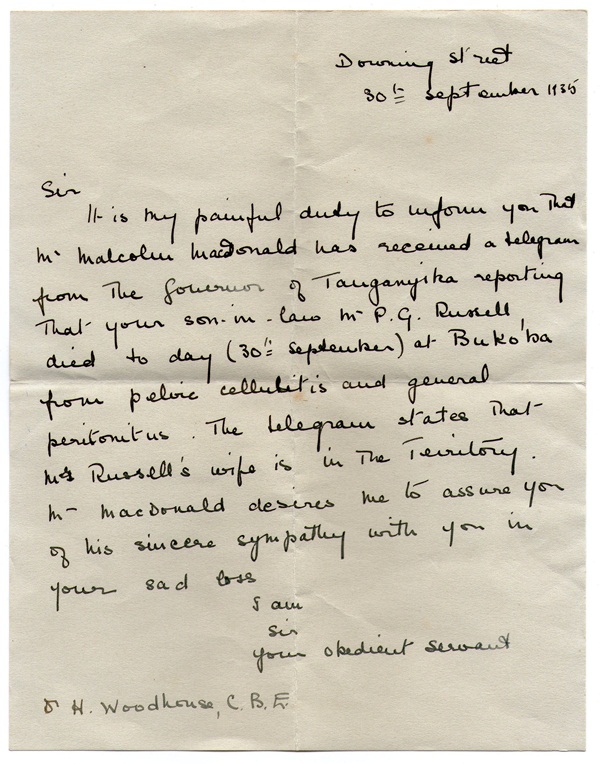 Downing Street
30th September 1935
Sir
It is my painful duty to inform you that
Mr Malcolm MacDonald has received a telegram
from the Governor of Tanganyika reporting
that your son-in-law Mr P.G. Russell,
died to day (30th September) at Buko'ba
from pelvic cellulitis and general
peritonitus. The telegram states that
Mrs Russell's wife is in the Territory.
Mr MacDonald desires me to assure you
of his sincere sympathy with you in
your sad loss
I am
Sir
your obedient servant
H. Woodhouse, C.B.E.